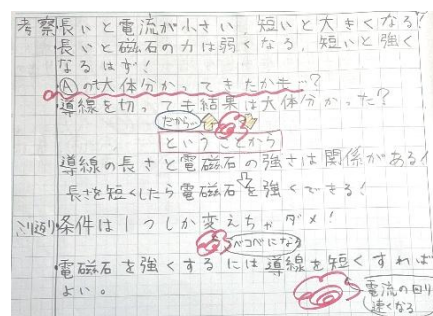 考察 長いと電流が小さい、短いと大きくなる!
長いと磁石の力は弱くなる 短いと強く
なるはず!
Ⓐの大体分かってきたかも…?
導線を切っても結果は大体分かった?
だから…
ということから
導線の長さと電磁石の強さは関係がある!
長さを短くしたら電磁石を強くできる!
ふり返り 条件は1つしか変えちゃダメ!
ペコペコになる
電磁石を強くするには導線を短くすれば
よい。
電流の回り
速くなる